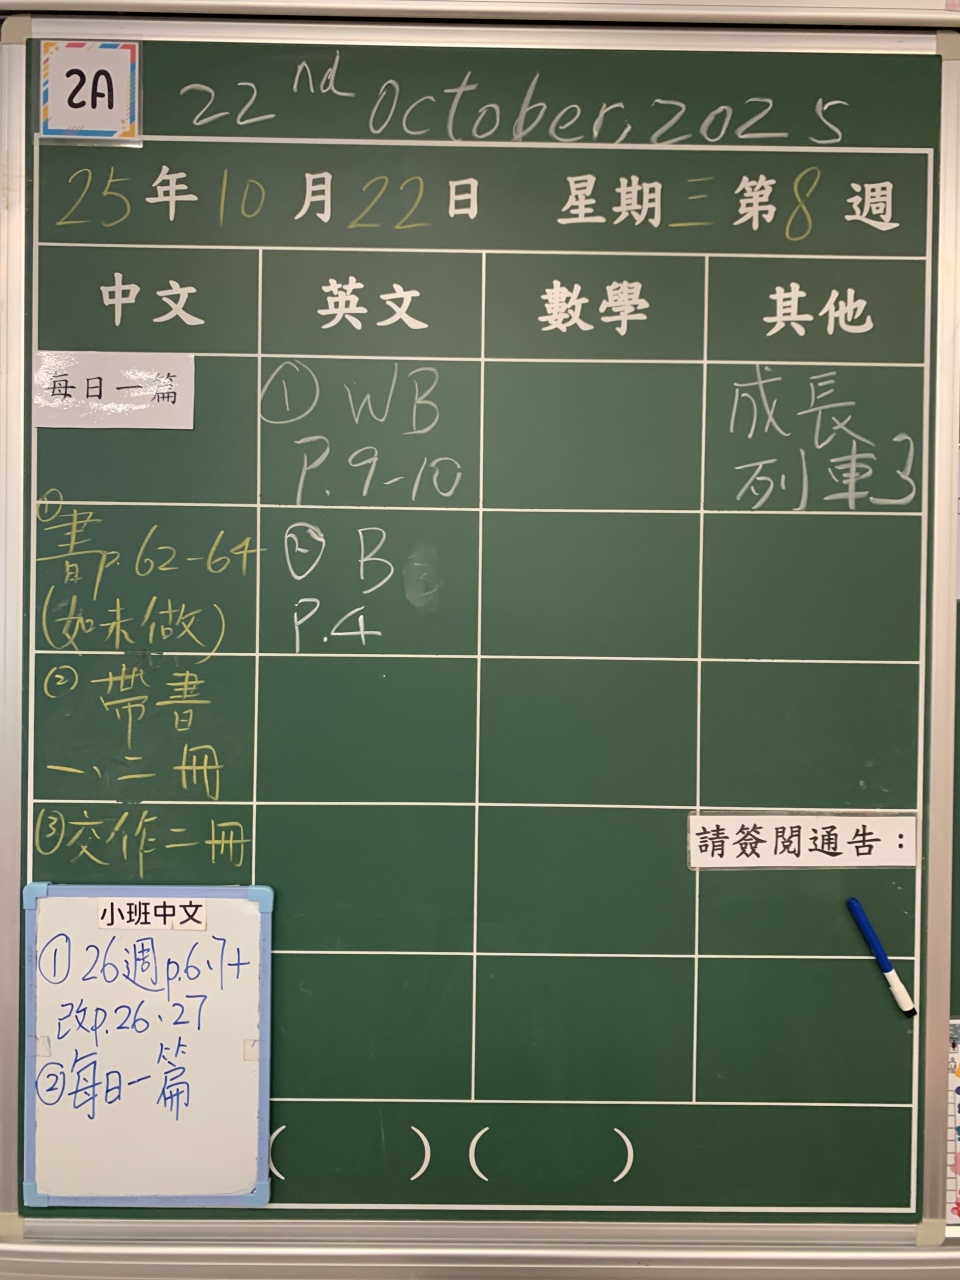 2A
22nd October, 2025
25年10月22日 星期三第8週
中文 英文 數學 其他
每日一篇
① 書p.62-64
(如未做)
② 帶書
一、二冊
③交作二冊
① WB
P.9-10
② B
P.4
成長
列車3
請簽閱通告：
小班中文
① 26週p.6、7+
改p.26、27
②每日一篇
( ) ( )